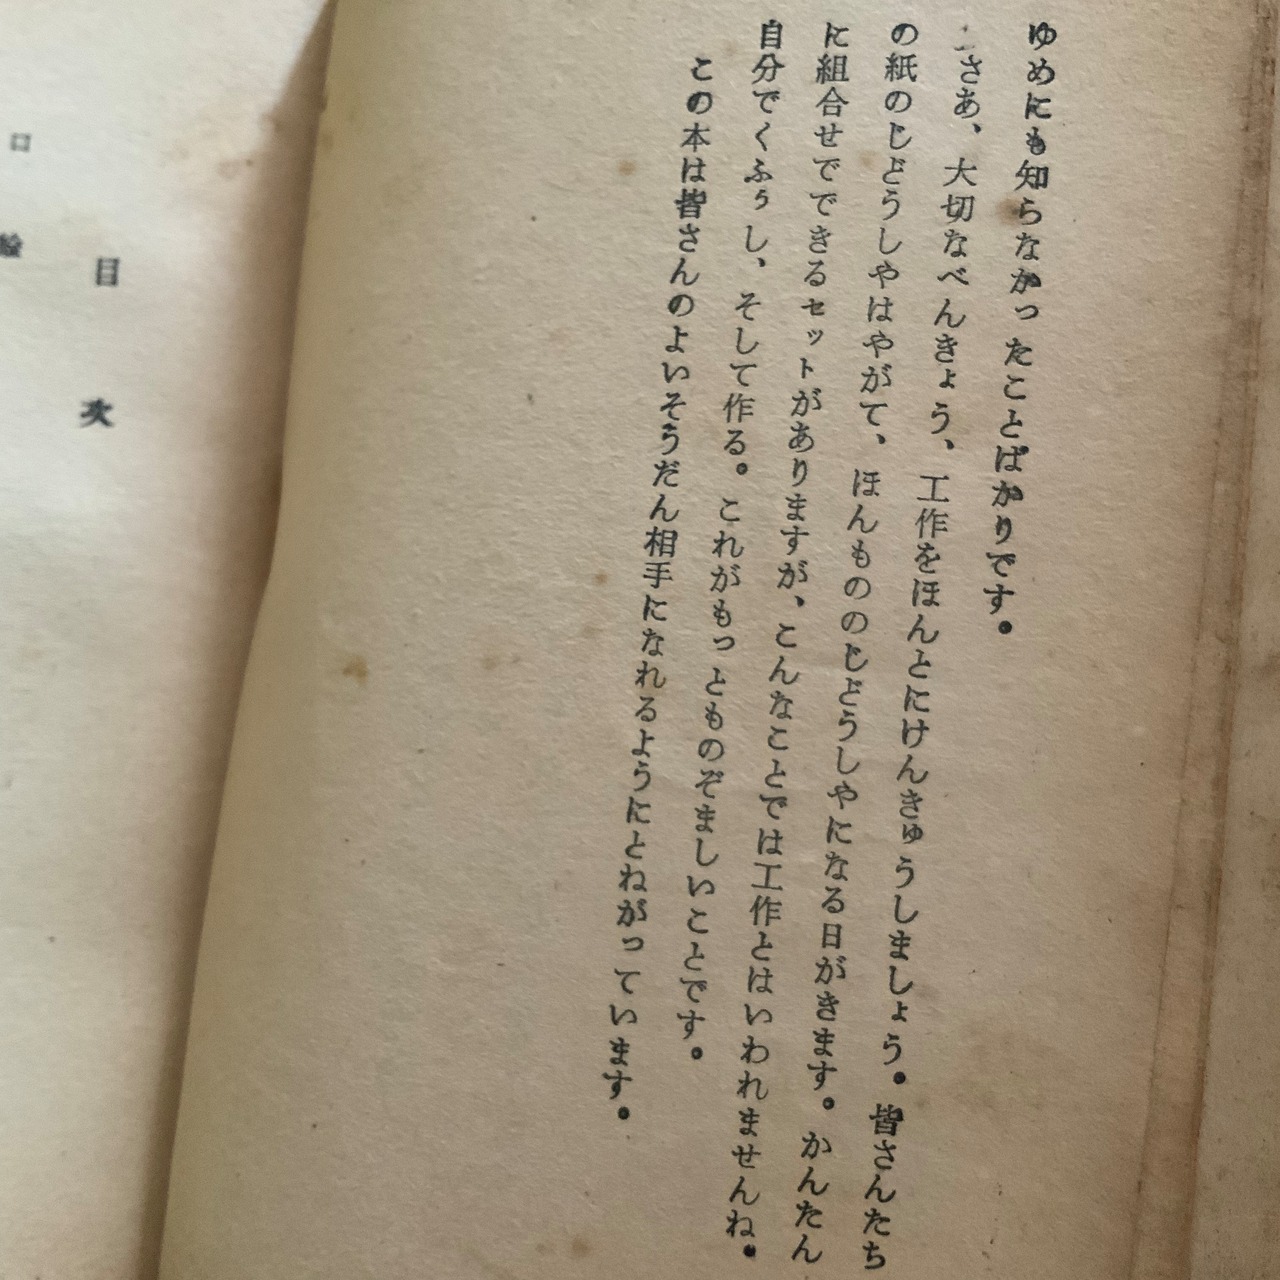 ゆめにも知らなかったことばかりです。
さあ、大切なべんきょう、工作をほんとにけんきゅうしましょう。皆さんたち
の紙のじどうしやはやがて、ほんもののじどうしやになる日がきます。かんたん
に組合せでできるセットがありますが、こんなことでは工作とはいわれませんね。
自分でくふぅし、そして作る。これがもっとものぞましいことです。
この本は皆さんのよいそうだん相手になれるようにとねがっています。
目次
口